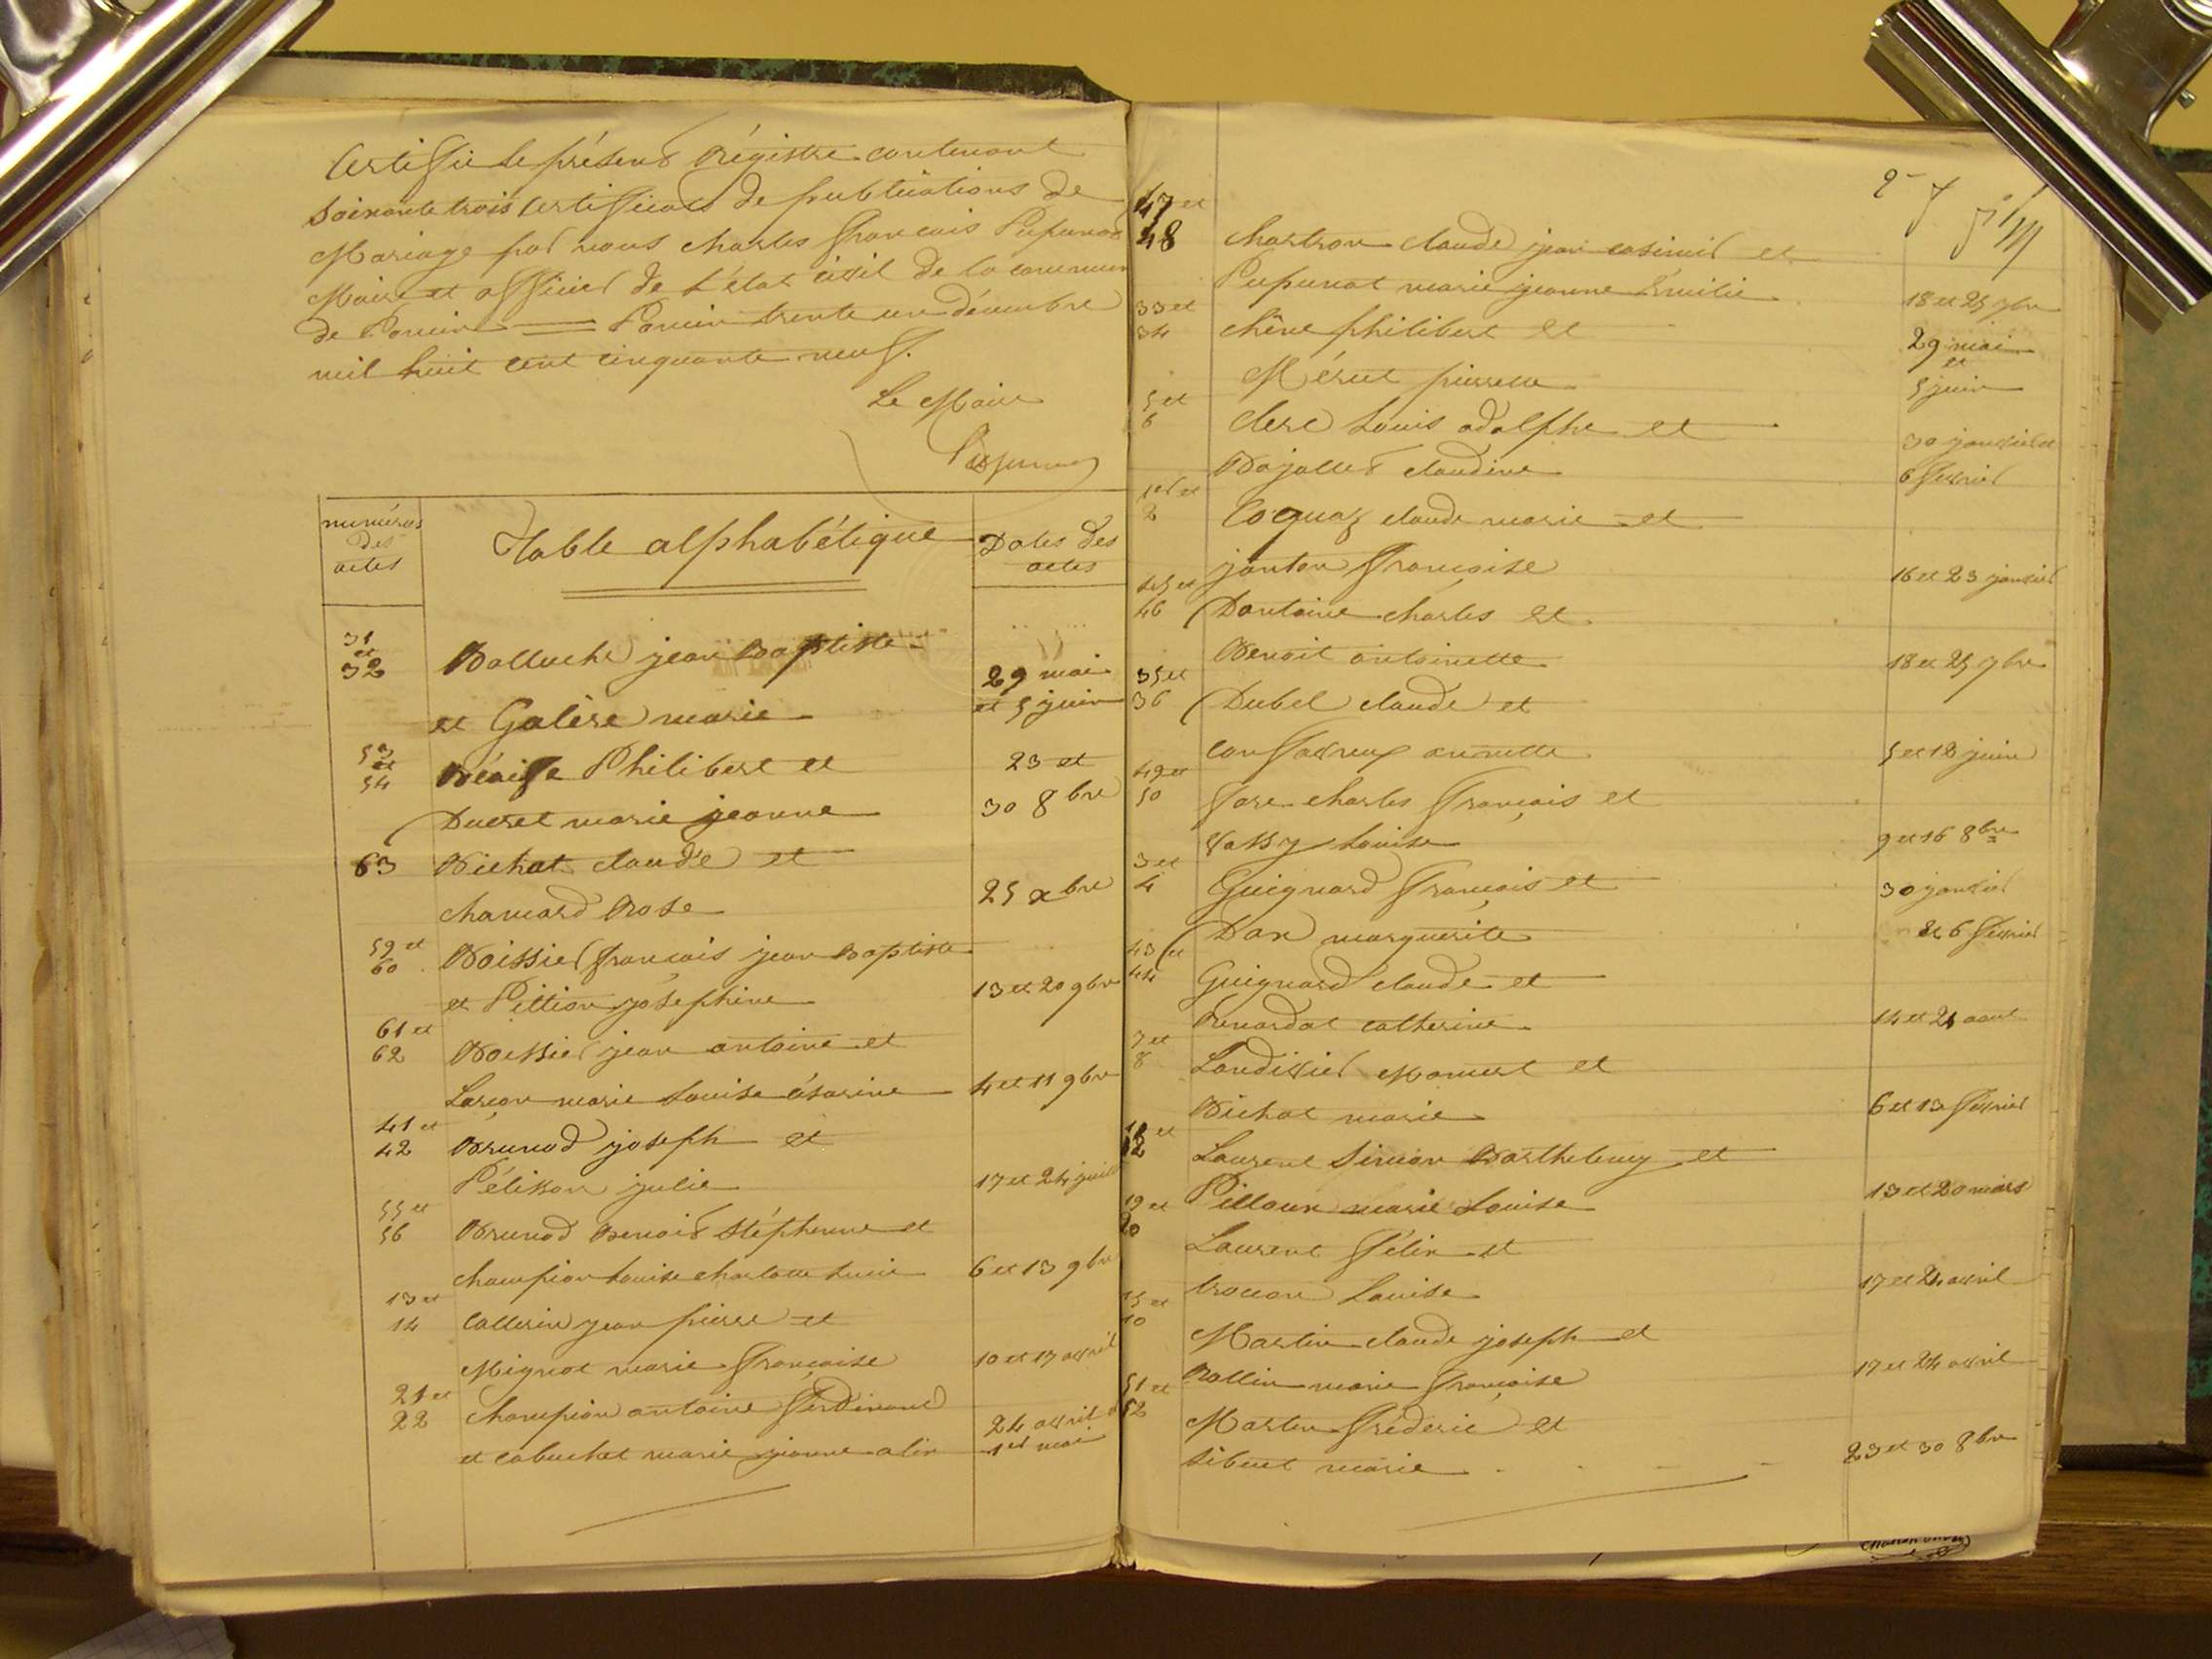 Certifié le présent régistre contenant
soixante trois certificats de publications de
Mariage par nous charles françois Pupunat
Maire et officier de l'état civil de la commune
de Poncin Poncin trente un décembre
mil huit cent cinquante neuf.
Le Maire
Pupunat
numéros des actes
Table alphabétique
Dates des actes
31 et 32 Balluche jean Baptiste
et Galère marie 29 mai et 5 juin
53 et 54 Philibert et 23 et
Ducret marie jeanne 30 8bre
63 Bichat claude et
chanard Rose 25 xbre
59 et 60 Boissier françois jean Baptiste
et Pittion joséphine 13 et 20 9bre
61 et 62 Boissier jean antoine et
marie Louise césarine 4 et 11 9bre
41 et 42 Brunod joseph et
Pélisson julie 17 et 24 juillet
55 et 56 Brunod Benoit Stéphenne et
champion Louise charlotte Lucie 6 et 13 9bre
13 et 14 jean pierre et
Mignot marie françoise 10 et 17 avril
21 et 22 champion antoine ferdinand
et cabuchet marie jeanne 24 avril et 1er mai
2
47 et 48 chartron claude jean casimir et
Pupunat marie jeanne Emilie 18 et 25 7bre
33 et 34 chêne philibert et 29 mai et
pierrette 5 juin
5 et 6 clerc Louis adolphe et 30 janvier et
claudine 6 février
1er et 2 Coquaz claude marie et
janton françoise 16 et 23 janvier
45 et 46 Dontaine charles et
Benoit antoinette 18 et 25 7bre
35 et 36 Dubel claude et
annette 5 et 12 juin
49 et 50 fare charles françois et
Vassy Louise 9 et 16 8bre
3 et 4 Guignard françois et 30 janvier
marguerite et 6 février
43 et 44 Guignard claude et
Renardat catherine 14 et 21 aout
7 et 8 Landissier Mamert et
Bichat marie 6 et 13 février
et 12 Laurent Simon Barthelemy et
Pilloux marie Louise 13 et 20 mars
19 et 20 Laurent félix et
Louise 17 et 24 avril
15 et Martin claude joseph et
Rollin marie françoise 17 et 24 avril
51 et 52 Martin fréderic et
Sibuet marie 23 et 30 8bre